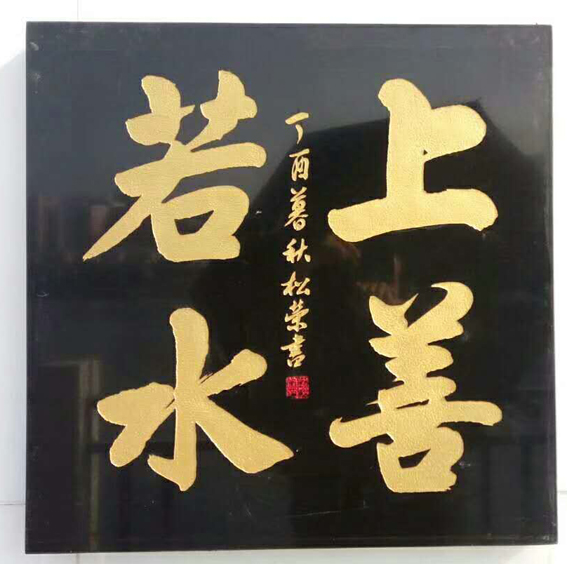 上善
若水
丁酉暮秋松荣书